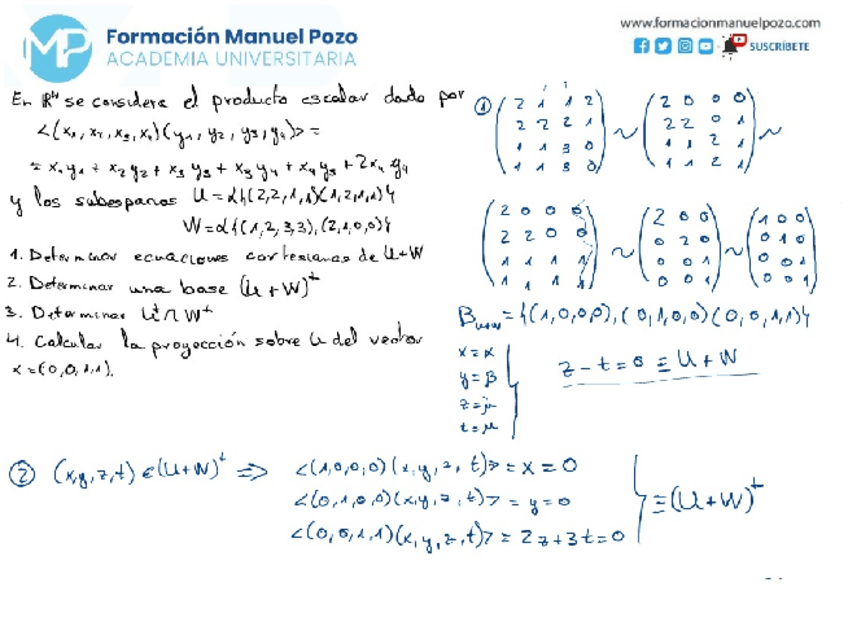 Formación Manuel Pozo
ACADEMIA UNIVERSITARIA
www.formacionmanuelpozo.com
SUSCRÍBETE
En ℝ⁴ se considera el producto escalar dado por
<(x₁, x₂, x₃, x₄)(y₁, y₂, y₃, y₄)> =
= x₁y₁ + x₂y₂ + x₃y₃ + x₃y₄ + x₄y₃ + 2x₄y₄
y los subespacios U = L{(2,2,1,1)(1,2,1,1)}
W = L{(1,2,3,3),(2,1,0,0)}
1. Determinar ecuaciones cartesianas de U+W
2. Determinar una base (U+W)⊥
3. Determinar U⊥∩W⊥
4. Calcular la proyección sobre U del vector
x=(0,0,1,1).
①
2 1 1 2
2 2 2 1
1 1 3 0
1 1 3 0
~
2 0 0 0
2 2 0 1
1 1 2 1
1 1 2 1
~
2 0 0 0
2 2 0 0
1 1 1 1
1 1 1 1
~
2 0 0
0 2 0
0 0 1
0 0 1
~
1 0 0
0 1 0
0 0 1
0 0 1
B U+W = {(1,0,0,0),(0,1,0,0)(0,0,1,1)}
x=α
y=β
z=μ
t=μ
z-t=0 ≡ U+W
② (x,y,z,t)∈(U+W)⊥ ⇒ <(1,0,0,0)(x,y,z,t)> = x = 0
<(0,1,0,0)(x,y,z,t)> = y=0
<(0,0,1,1)(x,y,z,t)> = 2z+3t=0
≡(U+W)⊥